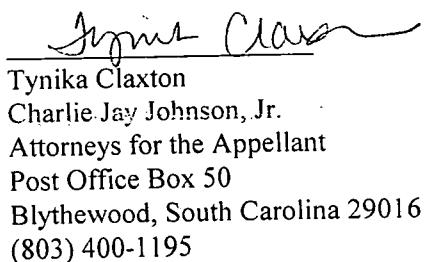 Tynika Claxton
Tynika Claxton
Charlie Jay Johnson, Jr.
Attorneys for the Appellant
Post Office Box 50
Blythewood, South Carolina 29016
(803) 400-1195